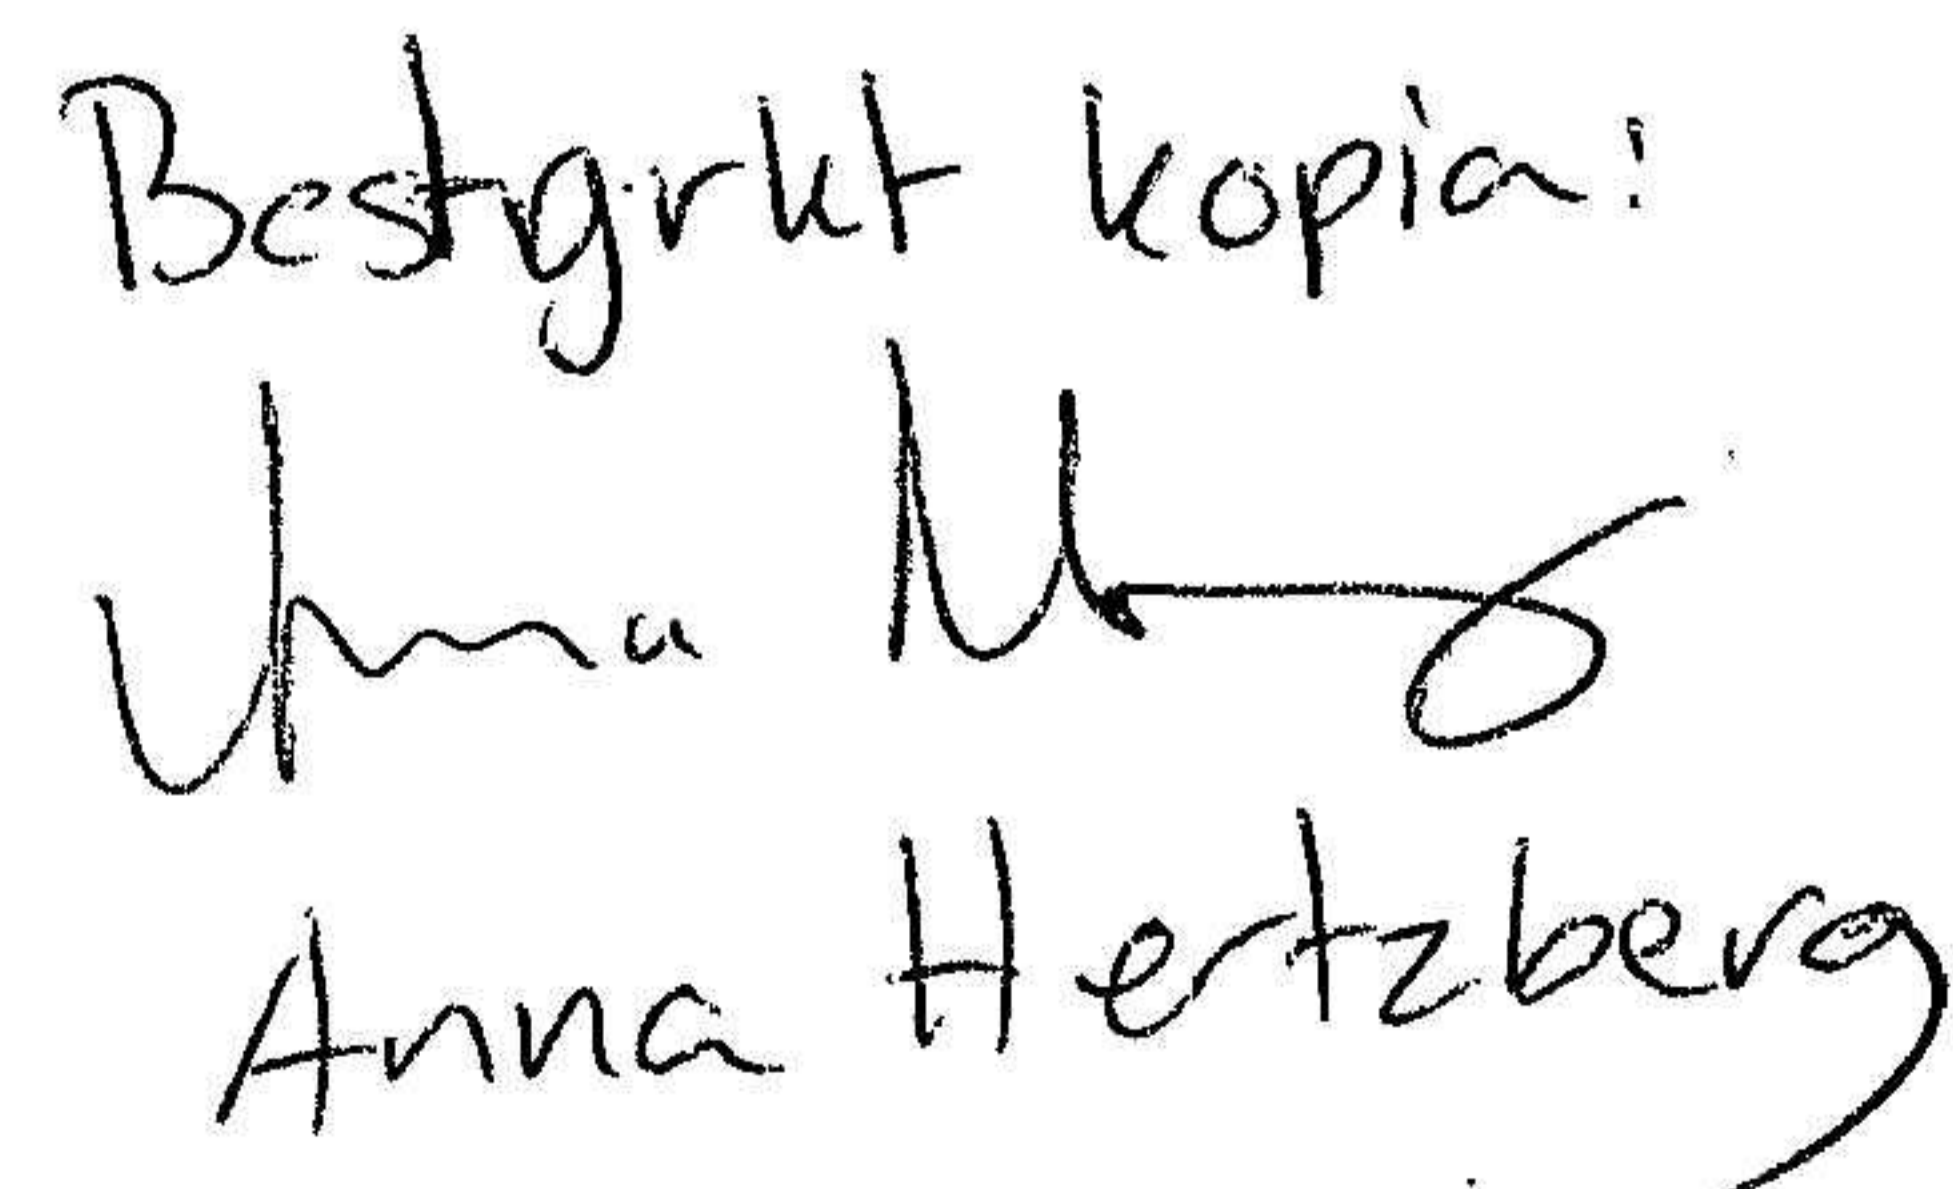 Bestyrkt kopia:
Anna Hertzberg